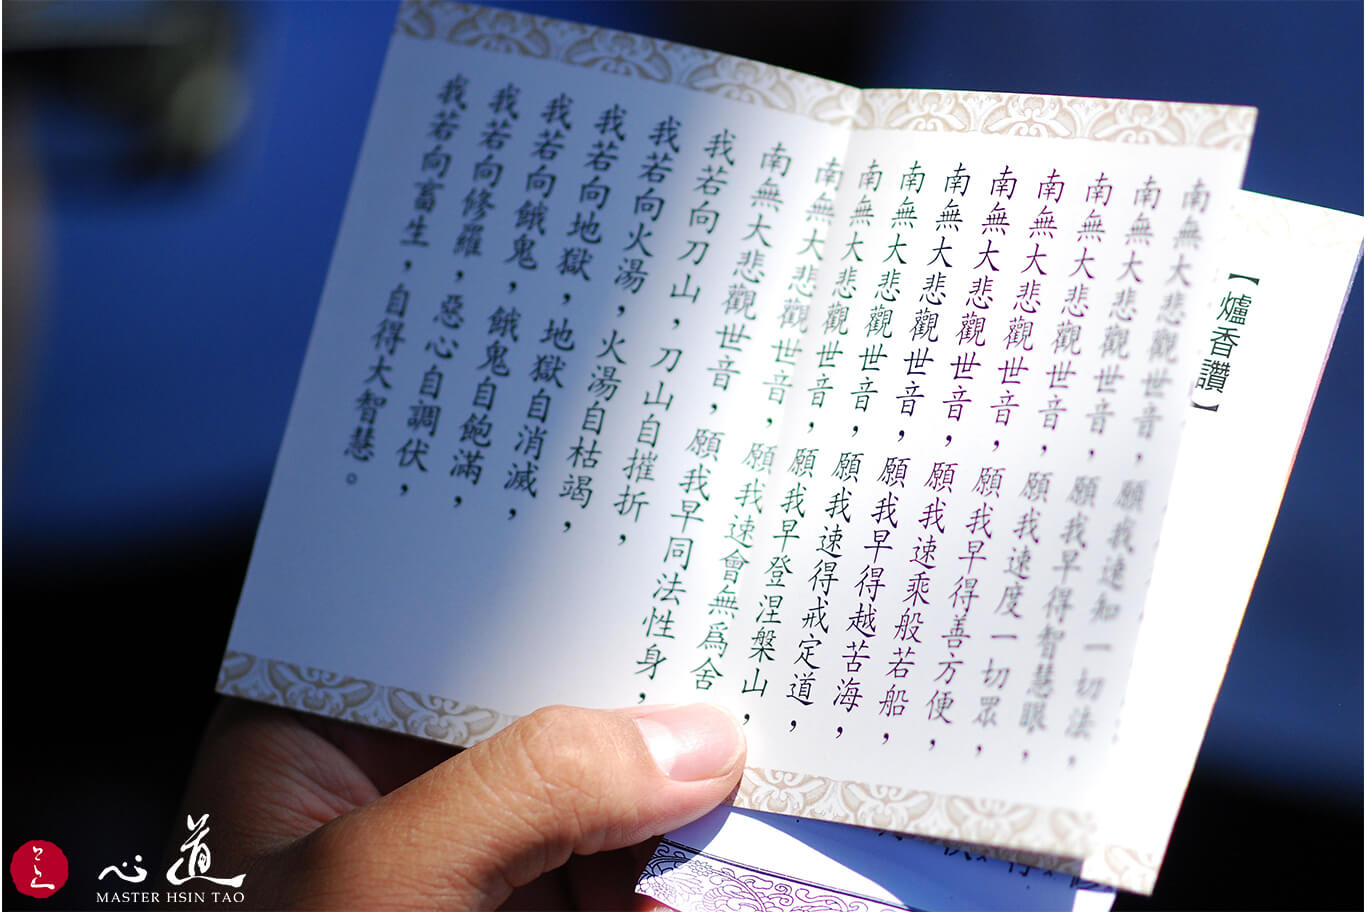 【爐香讚】
南無大悲觀世音,願我速知一切法,
南無大悲觀世音,願我早得智慧眼,
南無大悲觀世音,願我速度一切眾,
南無大悲觀世音,願我早得善方便,
南無大悲觀世音,願我速乘般若船,
南無大悲觀世音,願我早得越苦海,
南無大悲觀世音,願我速得戒定道,
南無大悲觀世音,願我早登涅槃山,
南無大悲觀世音,願我速會無爲舍
南無大悲觀世音,願我早同法性身,
我若向刀山,刀山自摧折,
我若向火湯,火湯自枯竭,
我若向地獄,地獄自消滅,
我若向餓鬼,餓鬼自飽滿,
我若向修羅,惡心自調伏,
我若向畜生,自得大智慧。
心道
MASTER HSIN TAO